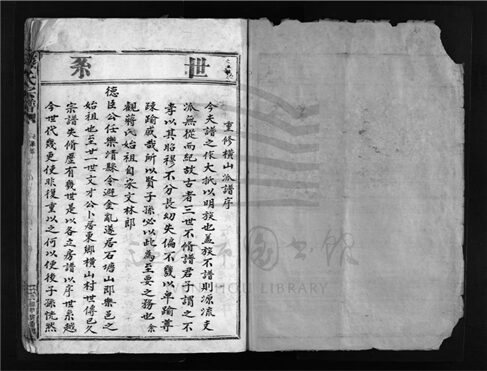 世系
重修横山派譜序
今夫譜之作大扺以明族也盖族不譜則源流支
派無從而紀故古者三世不脩譜君子謂之不
孝以其昭穆不分長幼失倫不幾以卑踰尊
踈踰戚哉所以賢子孫必以此為至要之務也余
觀蔣氏始祖自宗文林郎
德臣公任樂清縣令避金亂遂居石塘山即樂邑之
始祖也至廿一世文才公卜居東鄉横山村世傳已久
宗譜失脩歷有幾世是以各立房譜以序世系越
今世代幾更使非復重以之何以使後子孫恍然
WENZHOU LIBRARY